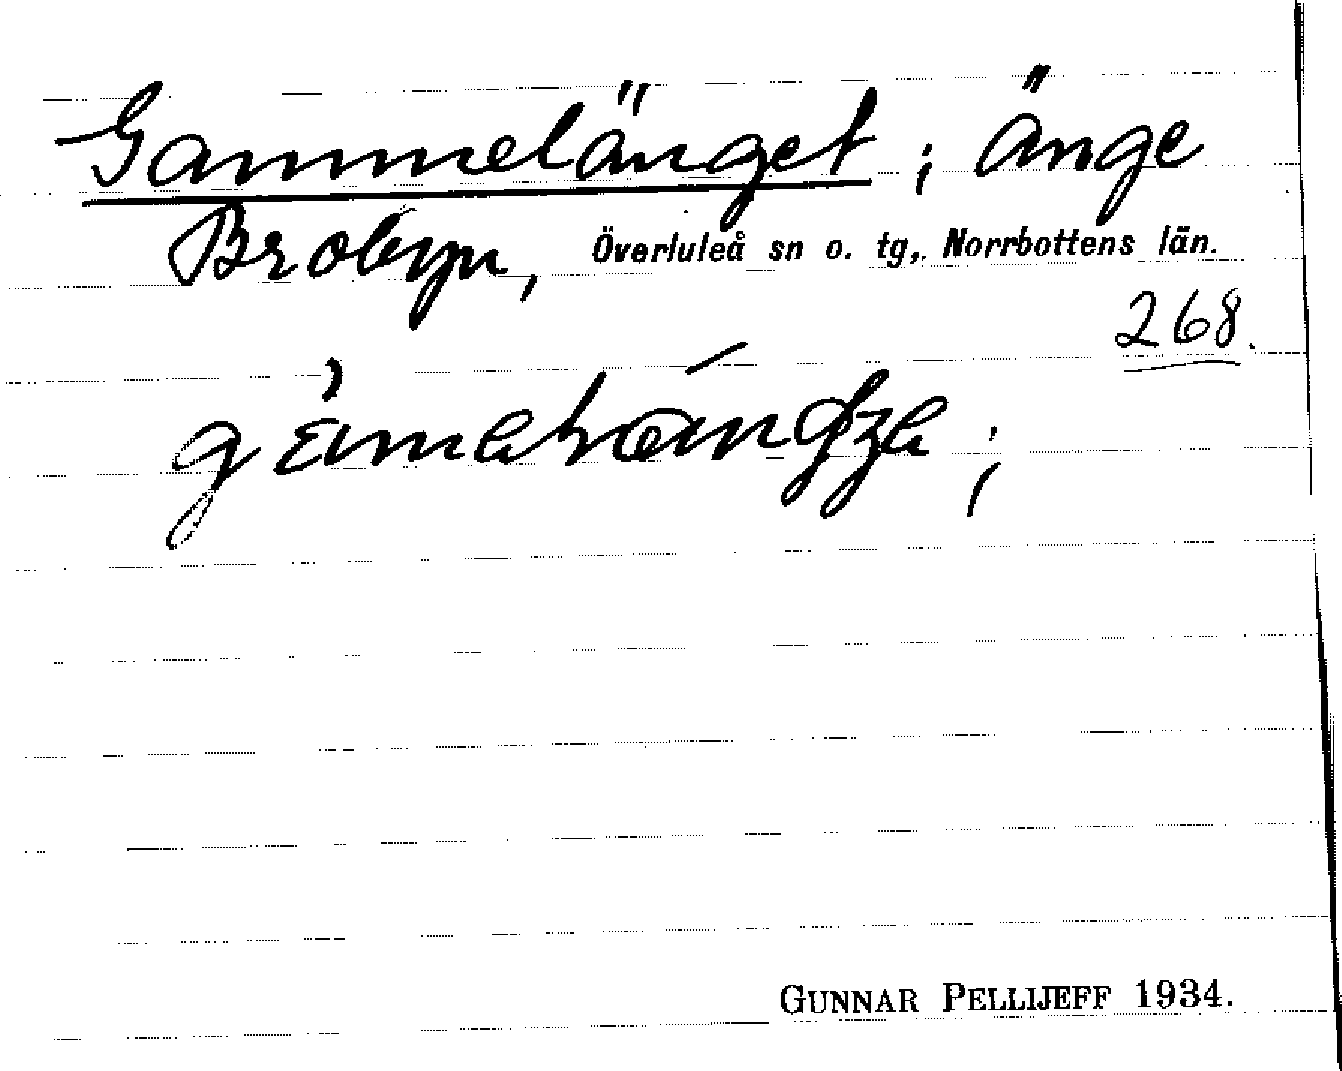 Gammelänget; änge
Brobyn, Överluleå sn o. tg., Norrbottens län.
268.
GUNNAR PELLIJEFF 1934.